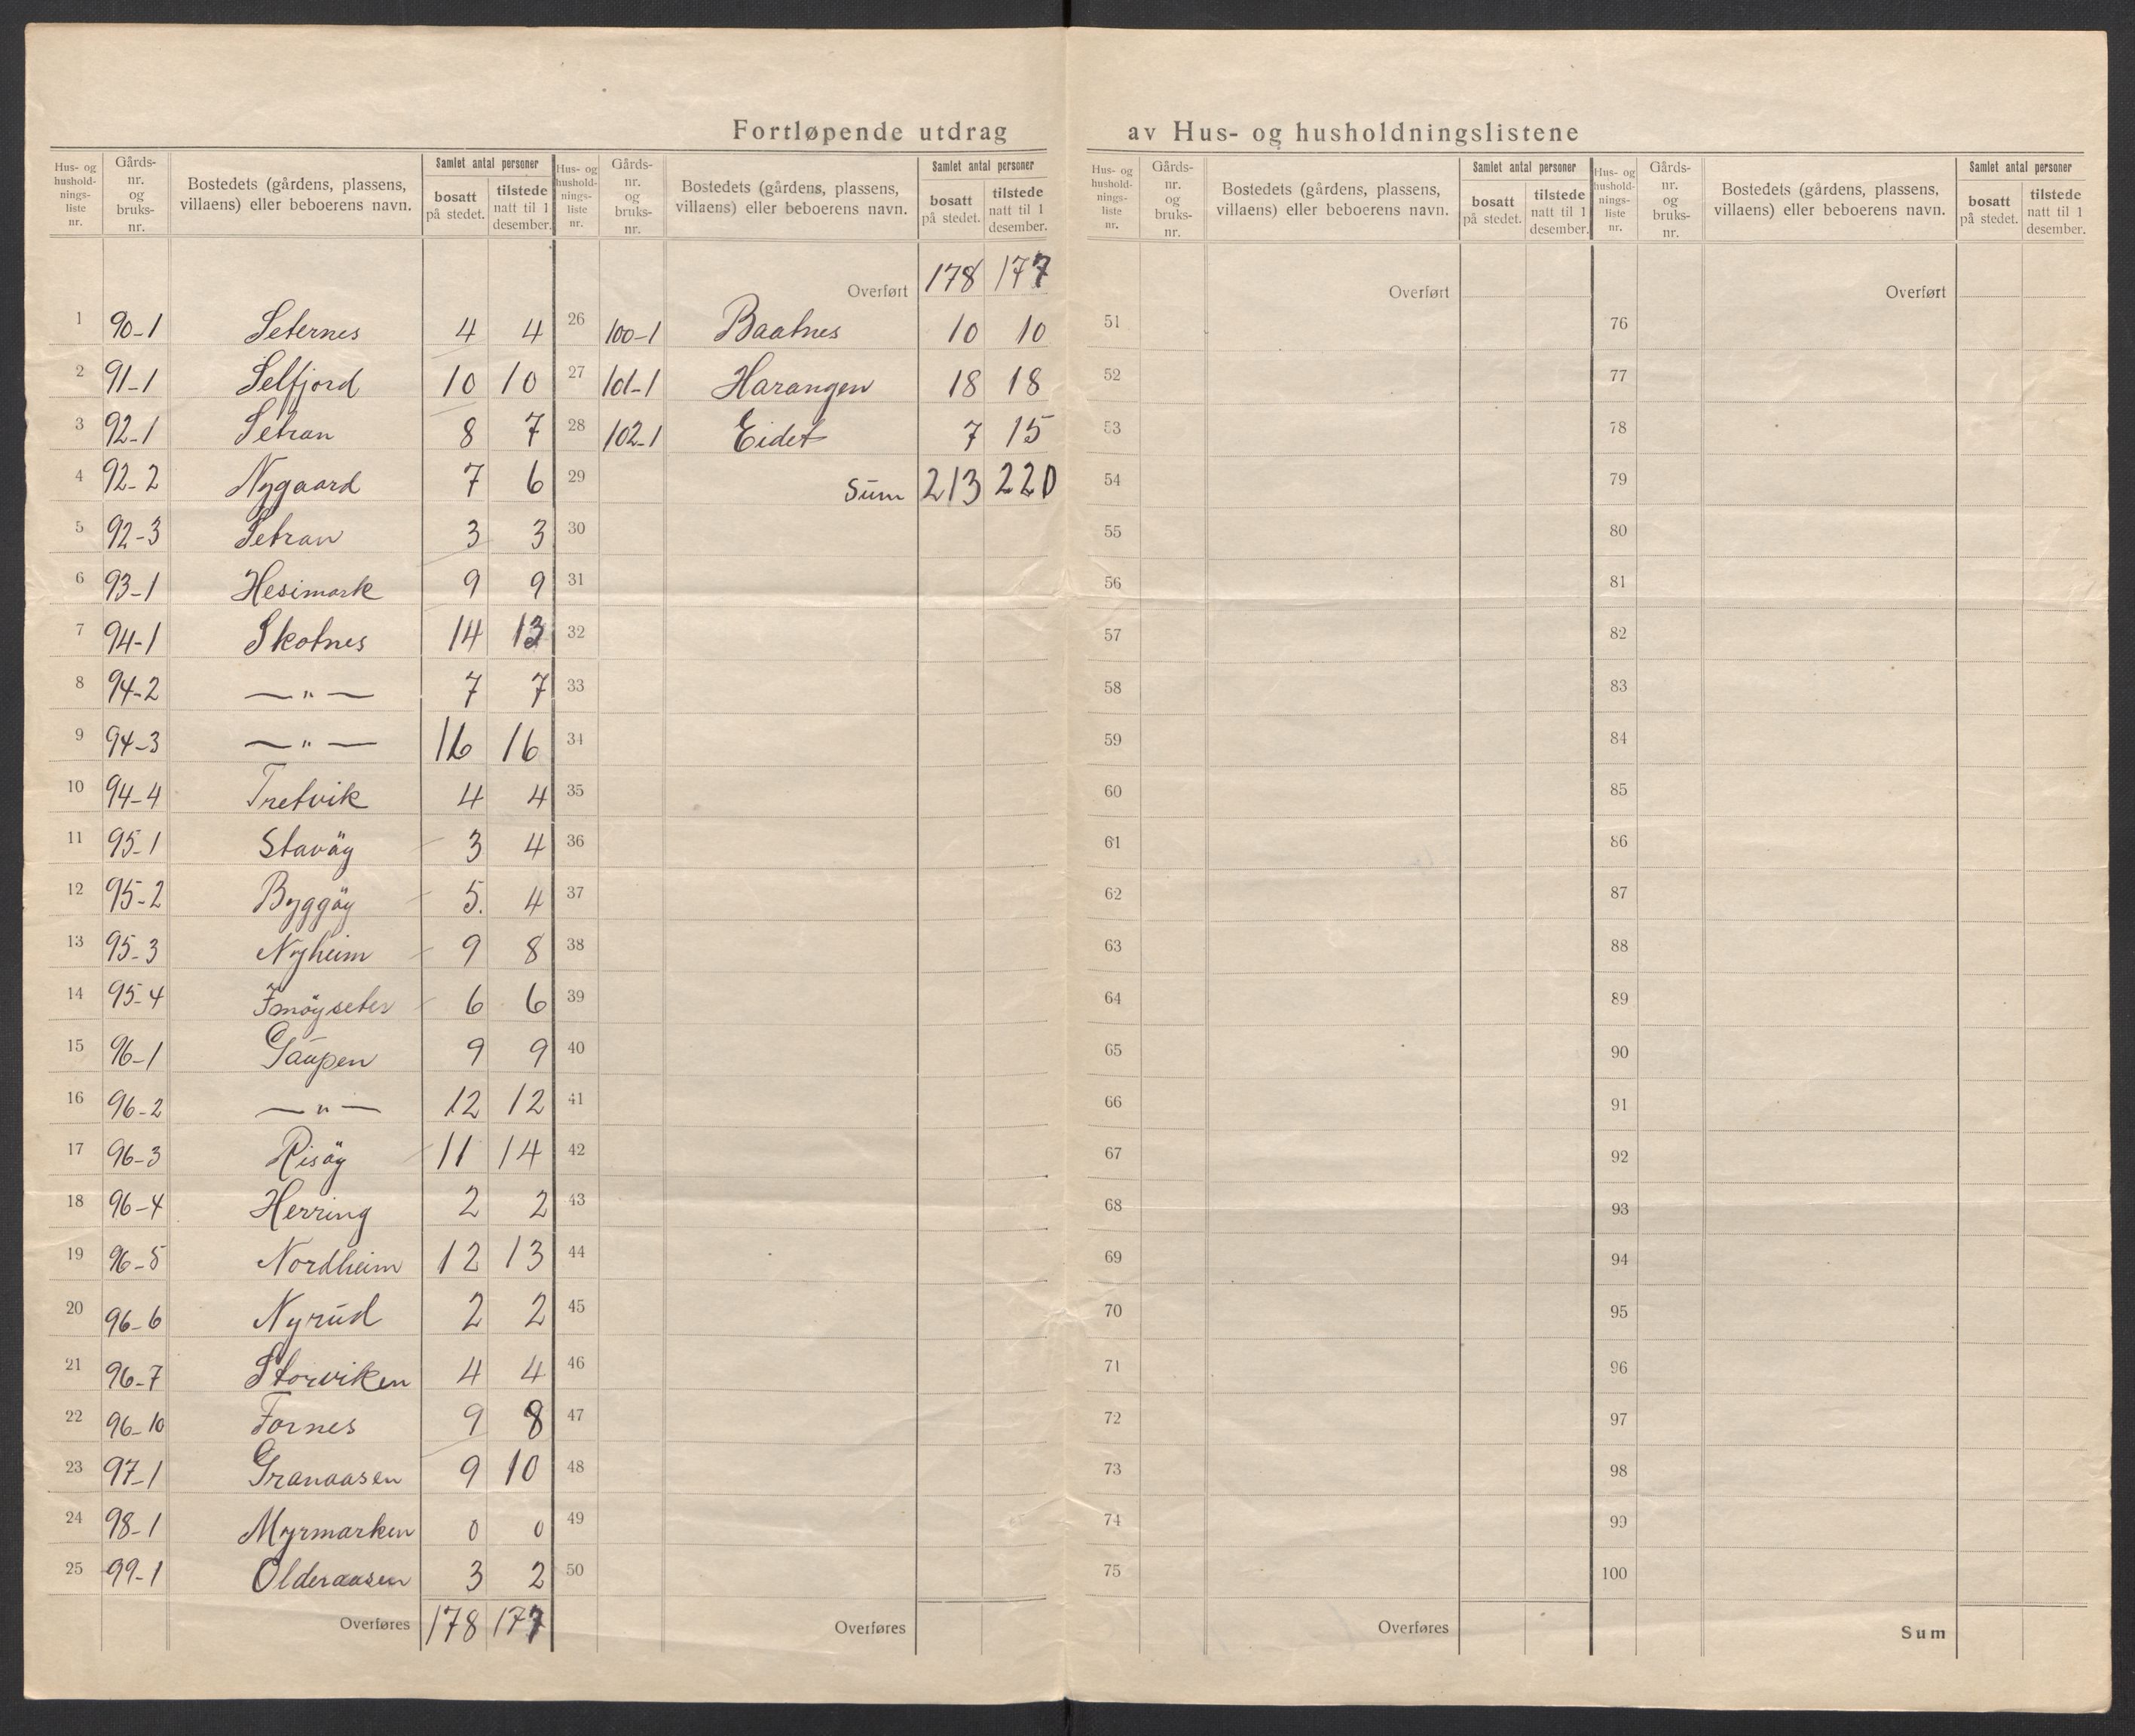 Fortløpende utdrag av Hus- og husholdningslistene
Hus- og hushold-nings-liste nr. | Gårds-nr. og bruks-nr. | Bostedets (gårdens, plassens, villaens) eller beboerens navn. | Samlet antal personer | bosatt på stedet. | tilstede natt til 1 desember.
1 90-1 Seternes 4 4
2 91-1 Selfjord 10 10
3 92-1 Setran 8 7
4 92-2 Nygaard 7 6
5 92-3 Setran 3 3
6 93-1 Hesimark 9 9
7 94-1 Skotnes 14 13
8 94-2 —"— 7 7
9 94-3 —"— 16 16
10 94-4 Tretvik 4 4
11 95-1 Stavöy 3 4
12 95-2 Byggöy 5. 4
13 95-3 Nyheim 9 8
14 95-4 6 6
15 96-1 Gaupen 9 9
16 96-2 —"— 12 12
17 96-3 Risöy 11 14
18 96-4 Herring 2 2
19 96-5 Nordheim 12 13
20 96-6 Nyrud 2 2
21 96-7 Storviken 4 4
22 96-10 Fornes 9 8
23 97-1 Granaasen 9 10
24 98-1 Myrmarken 0 0
25 99-1 Olderaasen 3 2
Overføres 178 177
Hus- og hushold-nings-liste nr. | Gårds-nr. og bruks-nr. | Bostedets (gårdens, plassens, villaens) eller beboerens navn. | Samlet antal personer | bosatt på stedet. | tilstede natt til 1 desember.
Overført 178 177
26 100-1 Baatnes 10 10
27 101-1 Harangen 18 18
28 102-1 Eidet 7 15
29 Sum 213 220
30
31
32
33
34
35
36
37
38
39
40
41
42
43
44
45
46
47
48
49
50
Overføres
Hus- og hushold-nings-liste nr. | Gårds-nr. og bruks-nr. | Bostedets (gårdens, plassens, villaens) eller beboerens navn. | Samlet antal personer | bosatt på stedet. | tilstede natt til 1 desember.
Overført
51
52
53
54
55
56
57
58
59
60
61
62
63
64
65
66
67
68
69
70
71
72
73
74
75
Overføres
Hus- og hushold-nings-liste nr. | Gårds-nr. og bruks-nr. | Bostedets (gårdens, plassens, villaens) eller beboerens navn. | Samlet antal personer | bosatt på stedet. | tilstede natt til 1 desember.
Overført
76
77
78
79
80
81
82
83
84
85
86
87
88
89
90
91
92
93
94
95
96
97
98
99
100
Sum